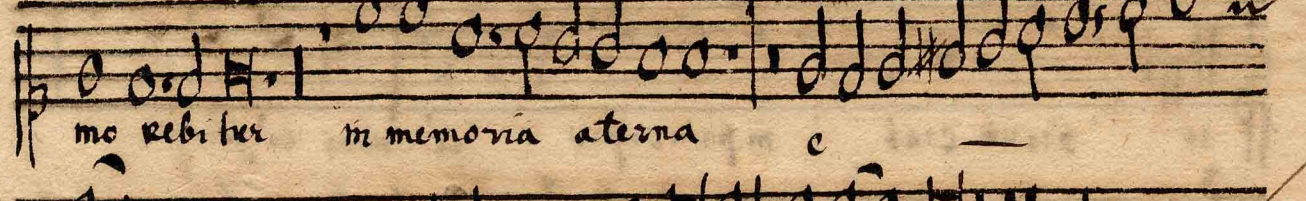 mo vebitur in memoria aterna e